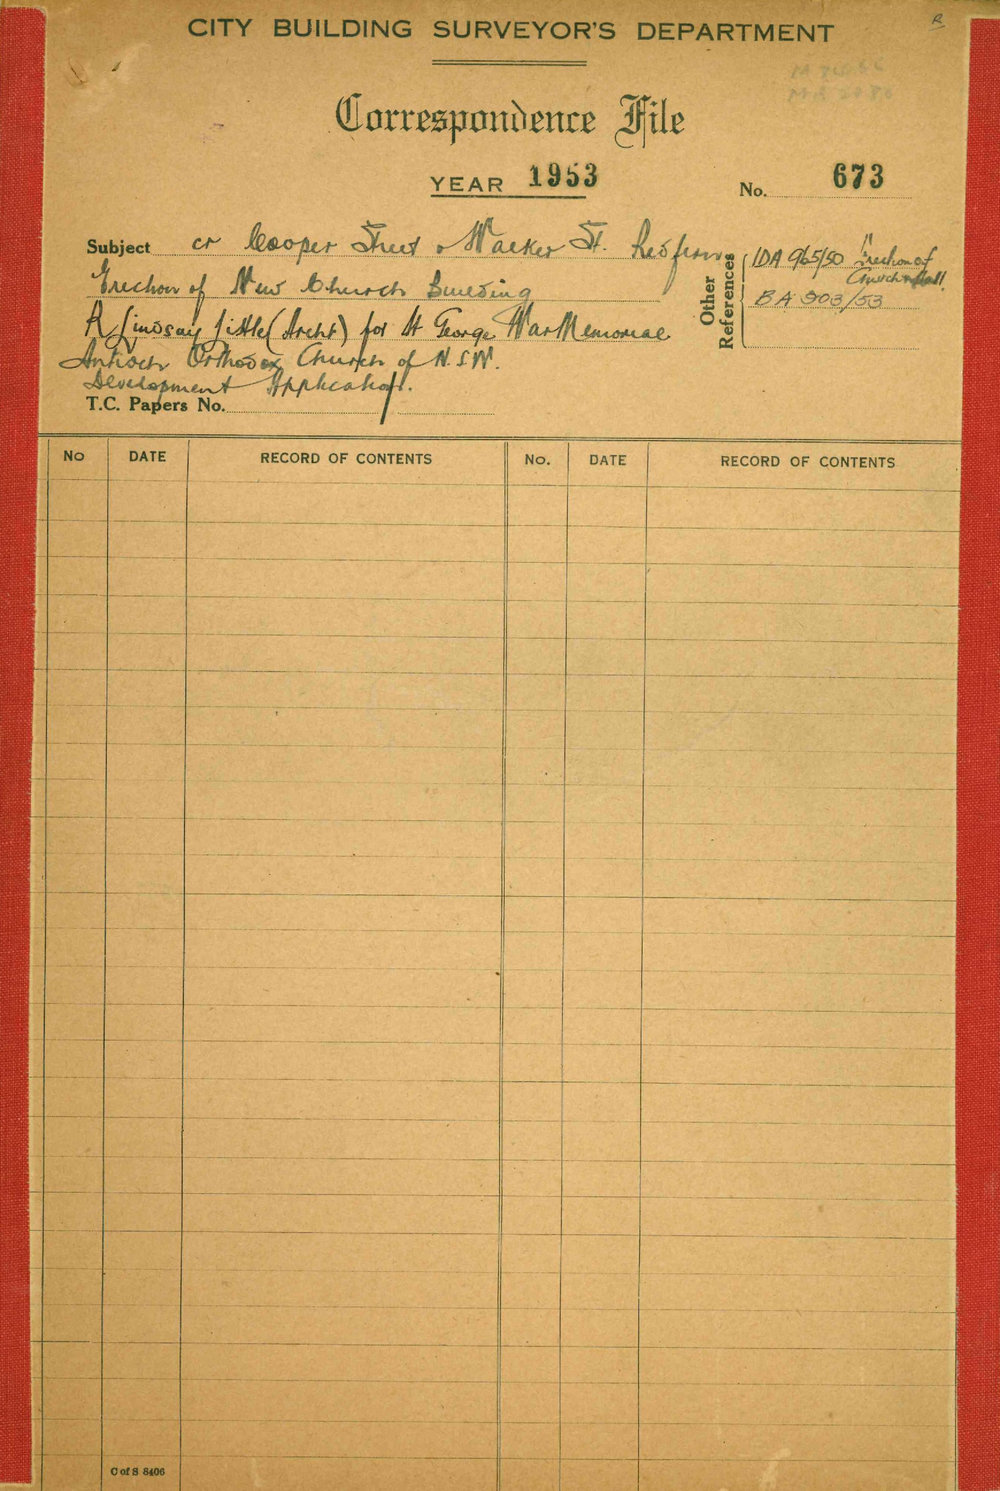 CITY BUILDING SURVEYOR'S DEPARTMENT
R
Correspondence File
YEAR 1953
No. 673
Subject cr Cooper Street & Walker St. Redfern
Erection of New Church Building
R Lindsay Little (Archt) for St George War Memorial
Antioch Orthodox Church of N.S.W.
Development Application.
T.C. Papers No.
Other References
IDA 965/50 Erection of
Church & Hall
BA 903/53
No DATE RECORD OF CONTENTS No. DATE RECORD OF CONTENTS
C of S 8406